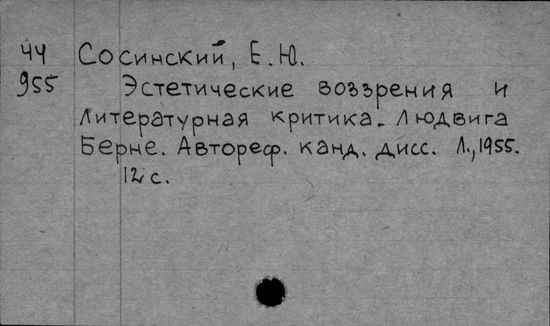 44 Сосинский, Е.Ю.
955 Эстетические воззрения и
литературная критика. Людвига
Берне. Автореф. канд. дисс. Л., 1955.
12 с.